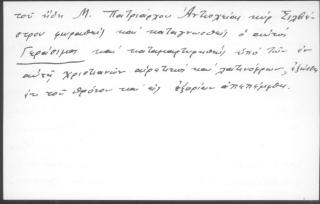 τοῦ ἤδη Μ. Πατριάρχου Ἀντιοχείας κύρ Σιλβέ-
στρου φωραθεὶς καὶ καταγνωσθεὶς ὁ αὐτὸς
Γεράσιμος καὶ καταμαρτυρηθεὶς ὑπὸ τῶν ἐν
αὐτῇ χριστιανῶν αἱρετικὸς καὶ λατινόφρων, ἐξώσθη
ἐκ τοῦ θρόνου καὶ εἰς ἐξορίαν ἀπεπέμφθη.